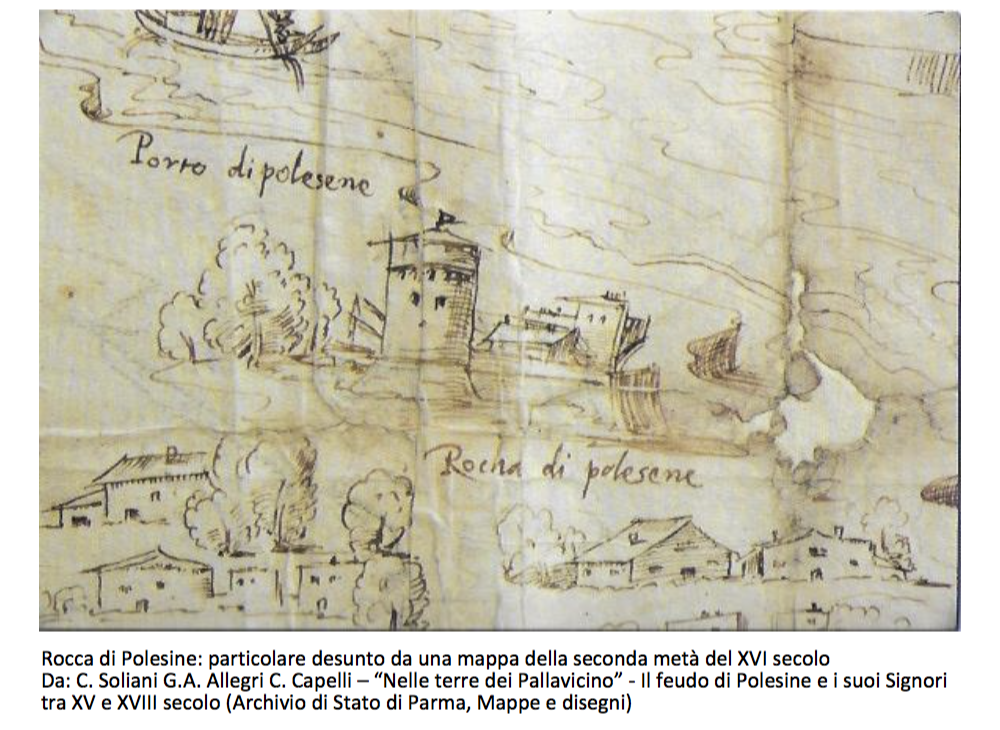 Porto di polesene
Rocha di polesene
Rocca di Polesine: particolare desunto da una mappa della seconda metà del XVI secolo
Da: C. Soliani G.A. Allegri C. Capelli – “Nelle terre dei Pallavicino” - Il feudo di Polesine e i suoi Signori
tra XV e XVIII secolo (Archivio di Stato di Parma, Mappe e disegni)